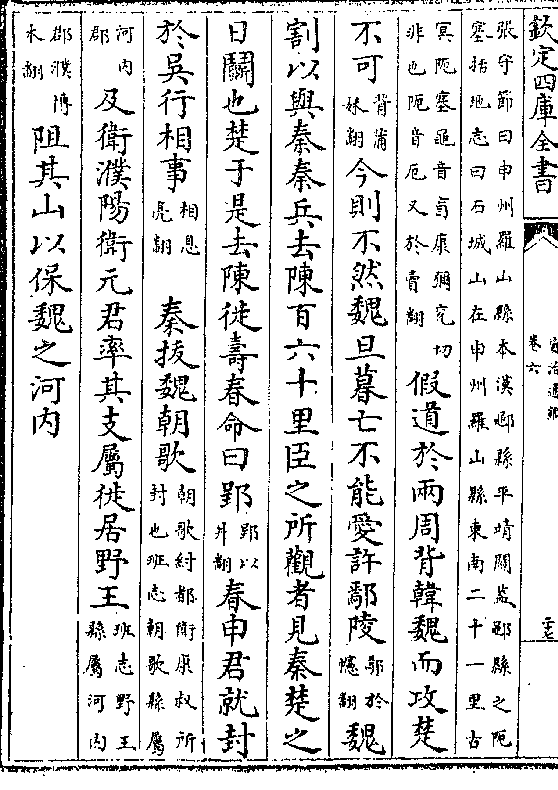 欽定四庫全書
資治通鑑
卷六
張守節曰申州羅山縣本漢鄳縣平靖關葢鄳縣之阨
塞括地志曰石城山在申州羅山縣東南二十一里古
冥阨塞鼂音盲康彌兖切
非也阨音厄又於賣翻
假道於兩周背韓魏而攻楚
不可背蒲
妹翻今則不然魏旦暮亡不能愛許鄢陵鄢於
憶翻魏
割以與秦秦兵去陳百六十里臣之所觀者見秦楚之
日鬬也楚于是去陳徙壽春命曰郢郢以
井翻春申君就封
於吳行相事相息
亮翻 秦拔魏朝歌朝歌紂都衞康叔所
封也班志朝歌縣屬
河内
郡及衛濮陽衛元君率其支屬徙居野王班志野王
縣屬河内
郡濮博
木翻阻其山以保魏之河内